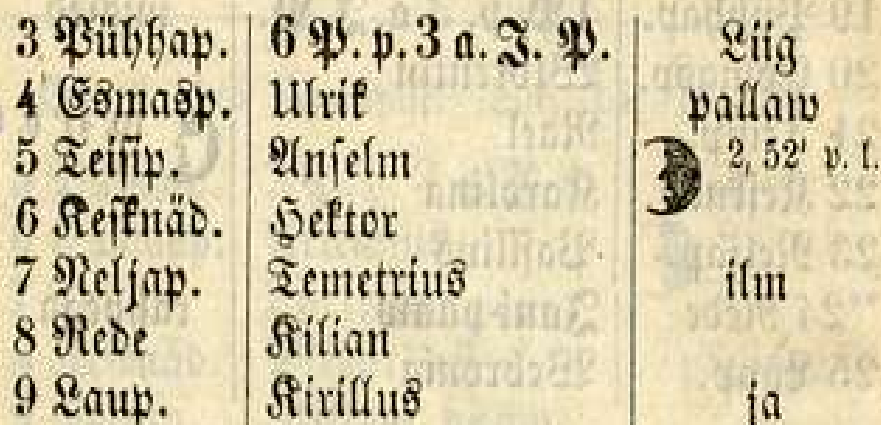 3 Pühhap. 6 P. p. 3 a. J. P. Liig
4 Esmasp. Ulrik pallaw
5 Teisip. Anselm 2, 52' p. l.
6 Kesknäd. Hektor
7 Neljap. Temetrius ilm
8 Rede Kilian
9 Laup. Kirillus ja